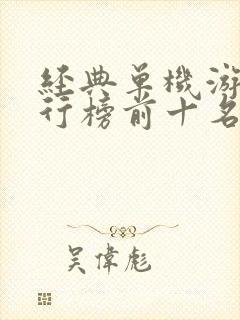 經典單機游
行榜前十名
吳偉彪